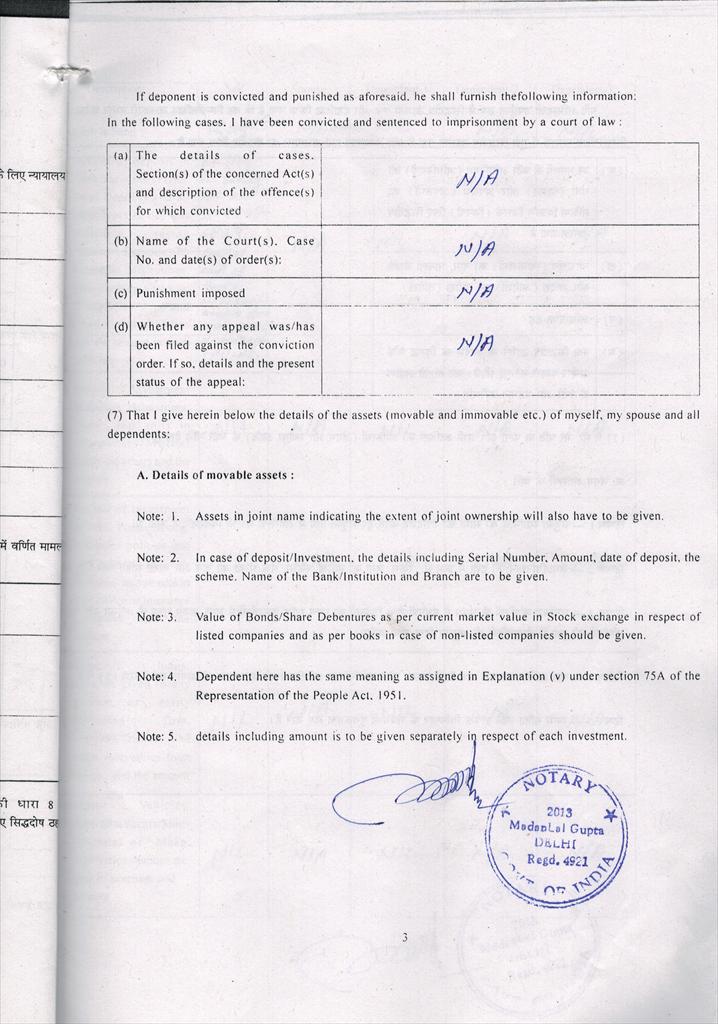 If deponent is convicted and punished as aforesaid. he shall furnish thefollowing information:
In the following cases, I have been convicted and sentenced to imprisonment by a court of law :
(a) The details of cases.
Section(s) of the concerned Act(s)
and description of the offence(s)
for which convicted
N/A
(b) Name of the Court(s). Case
No. and date(s) of order(s):
N/A
(c) Punishment imposed
N/A
(d) Whether any appeal was/has
been filed against the conviction
order. If so, details and the present
status of the appeal:
N/A
(7) That I give herein below the details of the assets (movable and immovable etc.) of myself, my spouse and all
dependents:
A. Details of movable assets :
Note: 1. Assets in joint name indicating the extent of joint ownership will also have to be given.
Note: 2. In case of deposit/Investment, the details including Serial Number, Amount, date of deposit, the
scheme. Name of the Bank/Institution and Branch are to be given.
Note: 3. Value of Bonds/Share Debentures as per current market value in Stock exchange in respect of
listed companies and as per books in case of non-listed companies should be given.
Note: 4. Dependent here has the same meaning as assigned in Explanation (v) under section 75A of the
Representation of the People Act, 1951.
Note: 5. details including amount is to be given separately in respect of each investment.
NOTARY
2013
MadanLal Gupta
DELHI
Regd. 4921
GOVT OF INDIA
3
के लिए न्यायालय
में वर्णित मामल
की धारा 8
ए सिद्धदोष ठह